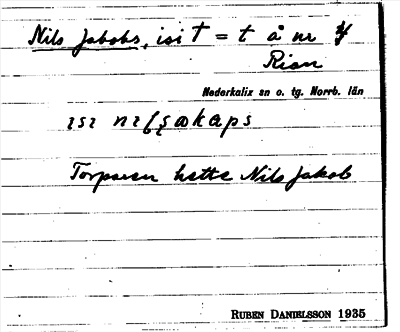 Nils Jakobs, isi t = t å nr 4
Rian
Nederkalix sn o. tg. Norrb. län
Torparen hette Nils Jakob
RUBEN DANIELSSON 1935